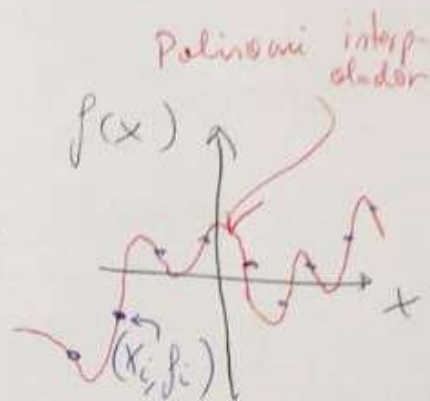 Polinomi interp-
olador
f(x)
x
(xi, fi)